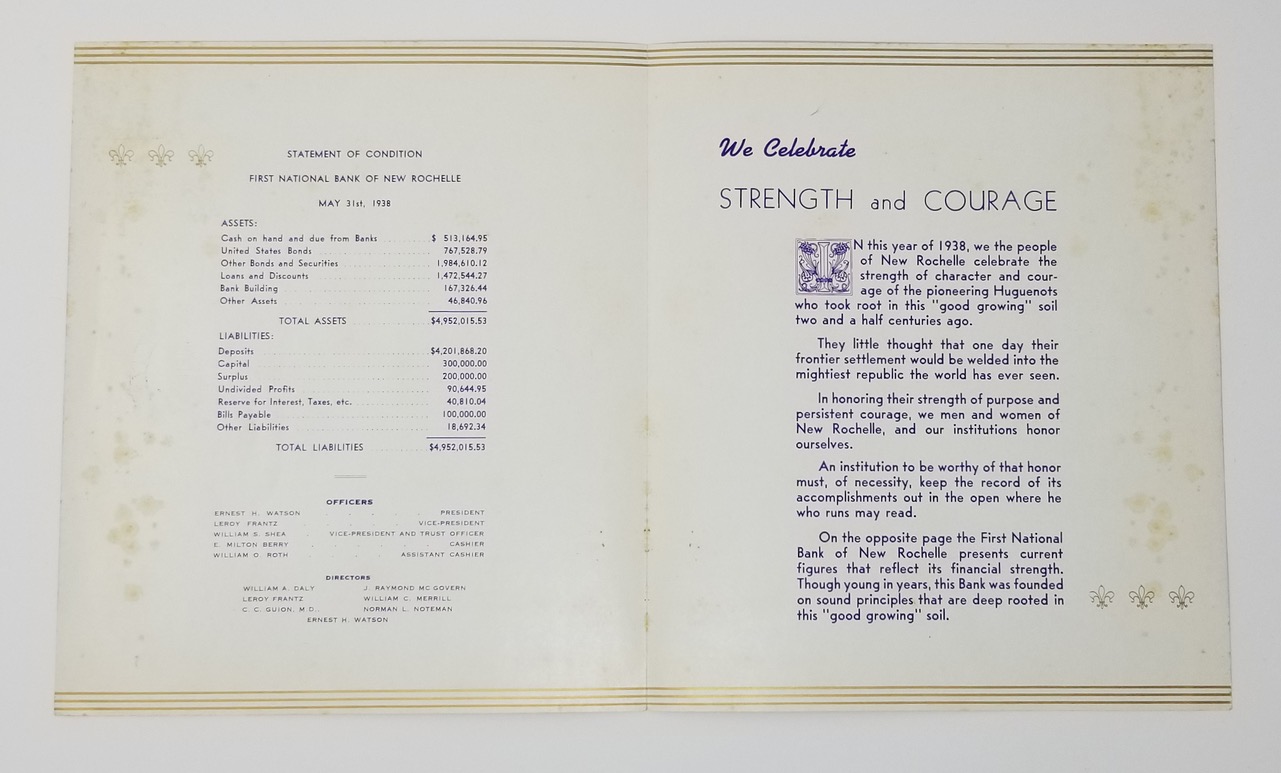 STATEMENT OF CONDITION
FIRST NATIONAL BANK OF NEW ROCHELLE
MAY 31st, 1938
ASSETS:
Cash on hand and due from Banks $ 513,164.95
United States Bonds 767,528.79
Other Bonds and Securities 1,984,610.12
Loans and Discounts 1,472,544.27
Bank Building 167,326.44
Other Assets 46,840.96
TOTAL ASSETS $4,952,015.53
LIABILITIES:
Deposits $4,201,868.20
Capital 300,000.00
Surplus 200,000.00
Undivided Profits 90,644.95
Reserve for Interest, Taxes, etc. 40,810.04
Bills Payable 100,000.00
Other Liabilities 18,692.34
TOTAL LIABILITIES $4,952,015.53
OFFICERS
ERNEST H. WATSON PRESIDENT
LEROY FRANTZ VICE-PRESIDENT
WILLIAM S. SHEA VICE-PRESIDENT AND TRUST OFFICER
E. MILTON BERRY CASHIER
WILLIAM O. ROTH ASSISTANT CASHIER
DIRECTORS
WILLIAM A. DALY J. RAYMOND MC GOVERN
LEROY FRANTZ WILLIAM C. MERRILL
C. C. GUION, M.D., NORMAN L. NOTEMAN
ERNEST H. WATSON
We Celebrate
STRENGTH and COURAGE
IN this year of 1938, we the people
of New Rochelle celebrate the
strength of character and cour-
age of the pioneering Huguenots
who took root in this "good growing" soil
two and a half centuries ago.
They little thought that one day their
frontier settlement would be welded into the
mightiest republic the world has ever seen.
In honoring their strength of purpose and
persistent courage, we men and women of
New Rochelle, and our institutions honor
ourselves.
An institution to be worthy of that honor
must, of necessity, keep the record of its
accomplishments out in the open where he
who runs may read.
On the opposite page the First National
Bank of New Rochelle presents current
figures that reflect its financial strength.
Though young in years, this Bank was founded
on sound principles that are deep rooted in
this "good growing" soil.